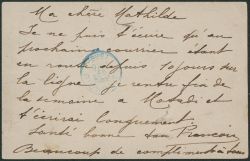 Ma chère Mathilde
Je ne puis t'écrire qu'au
prochain courrier étant
en route depuis 10 jours sur
la ligne je rentre fin de
la semaine a Matadi et
t'écrirai longuement
Santé bonne ton François
Beaucoup de compliments à tous